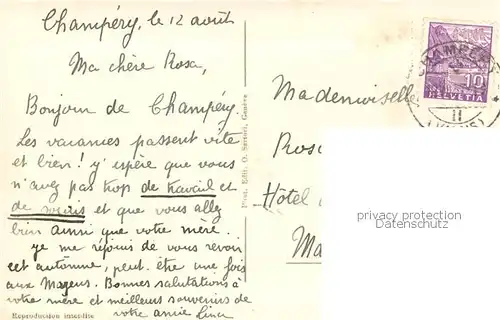 Champéry, le 12 août
Ma chère Rosa,
Bonjour de Champéry.
Les vacances passent vite
et bien! j'espère que vous
n'avez pas trop de travail et
de soucis et que vous allez
bien ainsi que votre mère.
je me réjouis de vous revoir
cet automne, peut-être une fois
aux Mayens. Bonnes salutations à
votre mère et meilleurs souvenirs de
votre amie
Reproduction interdite
Phot. Edit. O. Sartori, Genève
Mademoiselle
Rosa
Hôtel
Ma
CHAMPÉRY
10
HELVETIA
II
(VALAIS)
privacy protection
Datenschutz